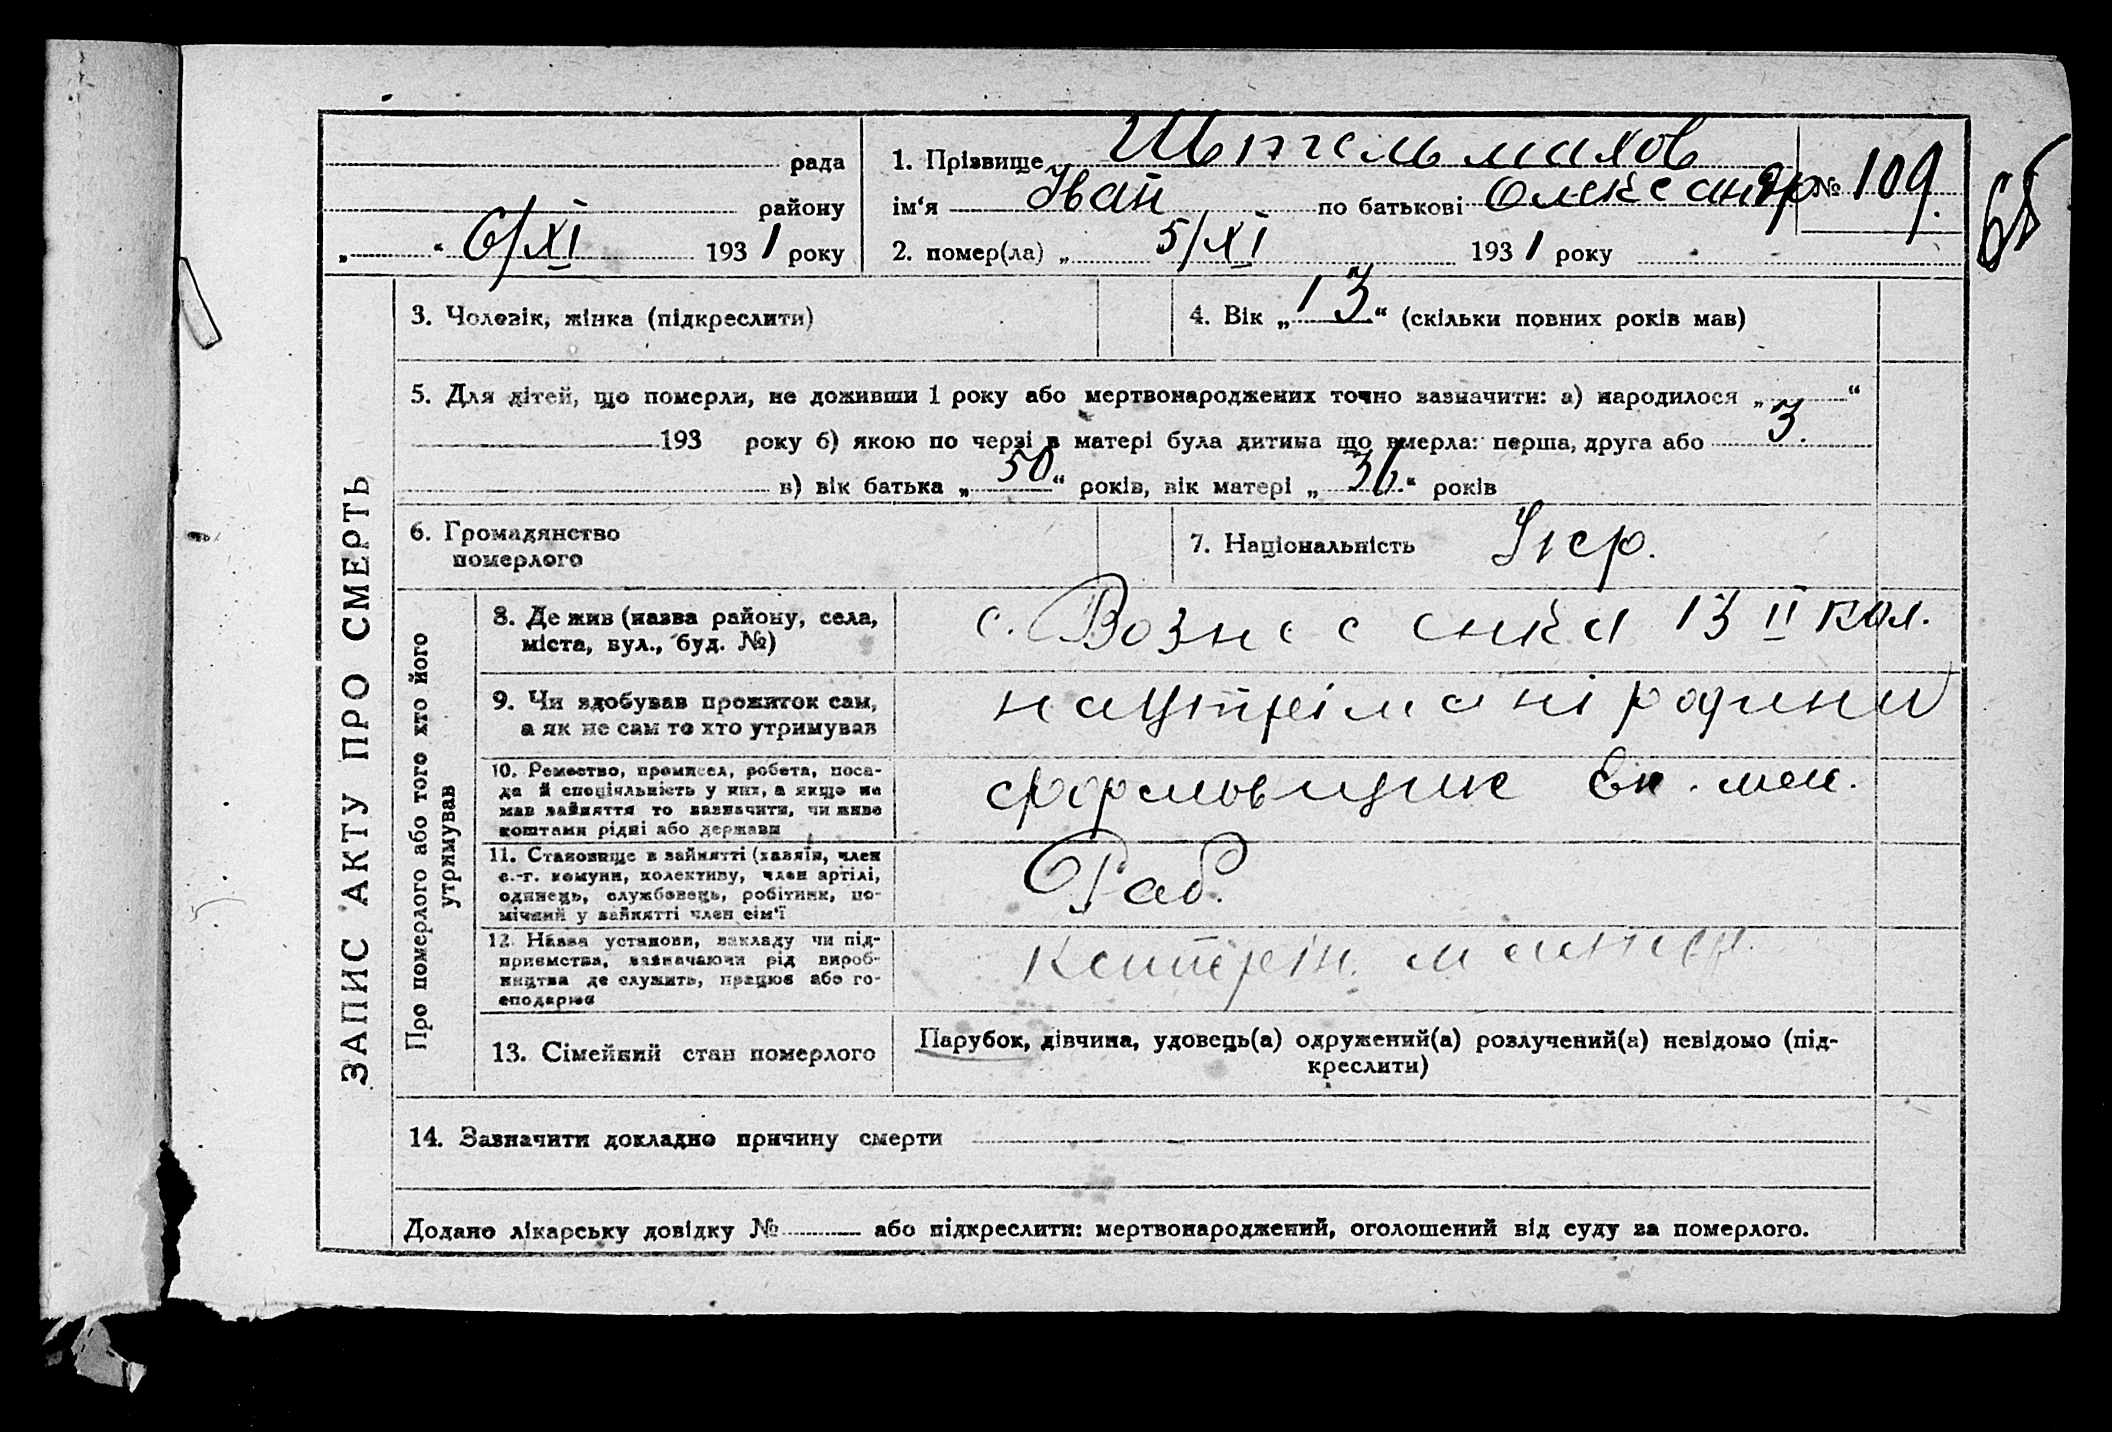 рада
району
„ “ 6/XI 1931 року
1. Прізвище Штельмахов
ім‘я Іван по батькові Олександр
№ 109
68
2. помер(ла) „ 5/XI 1931 року
3. Чоловік, жінка (підкреслити)
4. Вік „13“ (скільки повних років мав)
5. Для дітей, що померли, не доживши 1 року або мертвонароджених точно зазначити: а) народилося „ “
193 року б) якою по черзі в матері була дитина що вмерла: перша, друга або 3.
в) вік батька „50“ років, вік матері „36“ років
6. Громадянство
померлого
7. Національність Укр.
ЗАПИС АКТУ ПРО СМЕРТЬ
Про померлого або того хто його
утримував
8. Де жив (назва району, села,
міста, вул., буд. №)
с. Вознесенка 13 II кол.
9. Чи здобував прожиток сам,
а як не сам то хто утримував
на утрімані родини
10. Ремество, промисел, робота, поса-
да й спеціяльність у них, а якщо не
мав зайняття то зазначити, чи живе
коштами рідні або держави
формовщик
11. Становище в зайнятті (хазяїн, член
с.-г. комуни, колективу, член артілі,
одинець, службовець, робітник, по-
мічний у зайнятті член сім‘ї
Раб.
12. Назва установи, закладу чи під-
приємства, зазначаючи рід вироб-
ництва де служить, працює або го-
сподарює
13. Сімейний стан померлого
Парубок, дівчина, удовець(а) одружений(а) розлучений(а) невідомо (під-
креслити)
14. Зазначити докладно причину смерти
Додано лікарську довідку № або підкреслити: мертвонароджений, оголошений від суду за померлого.